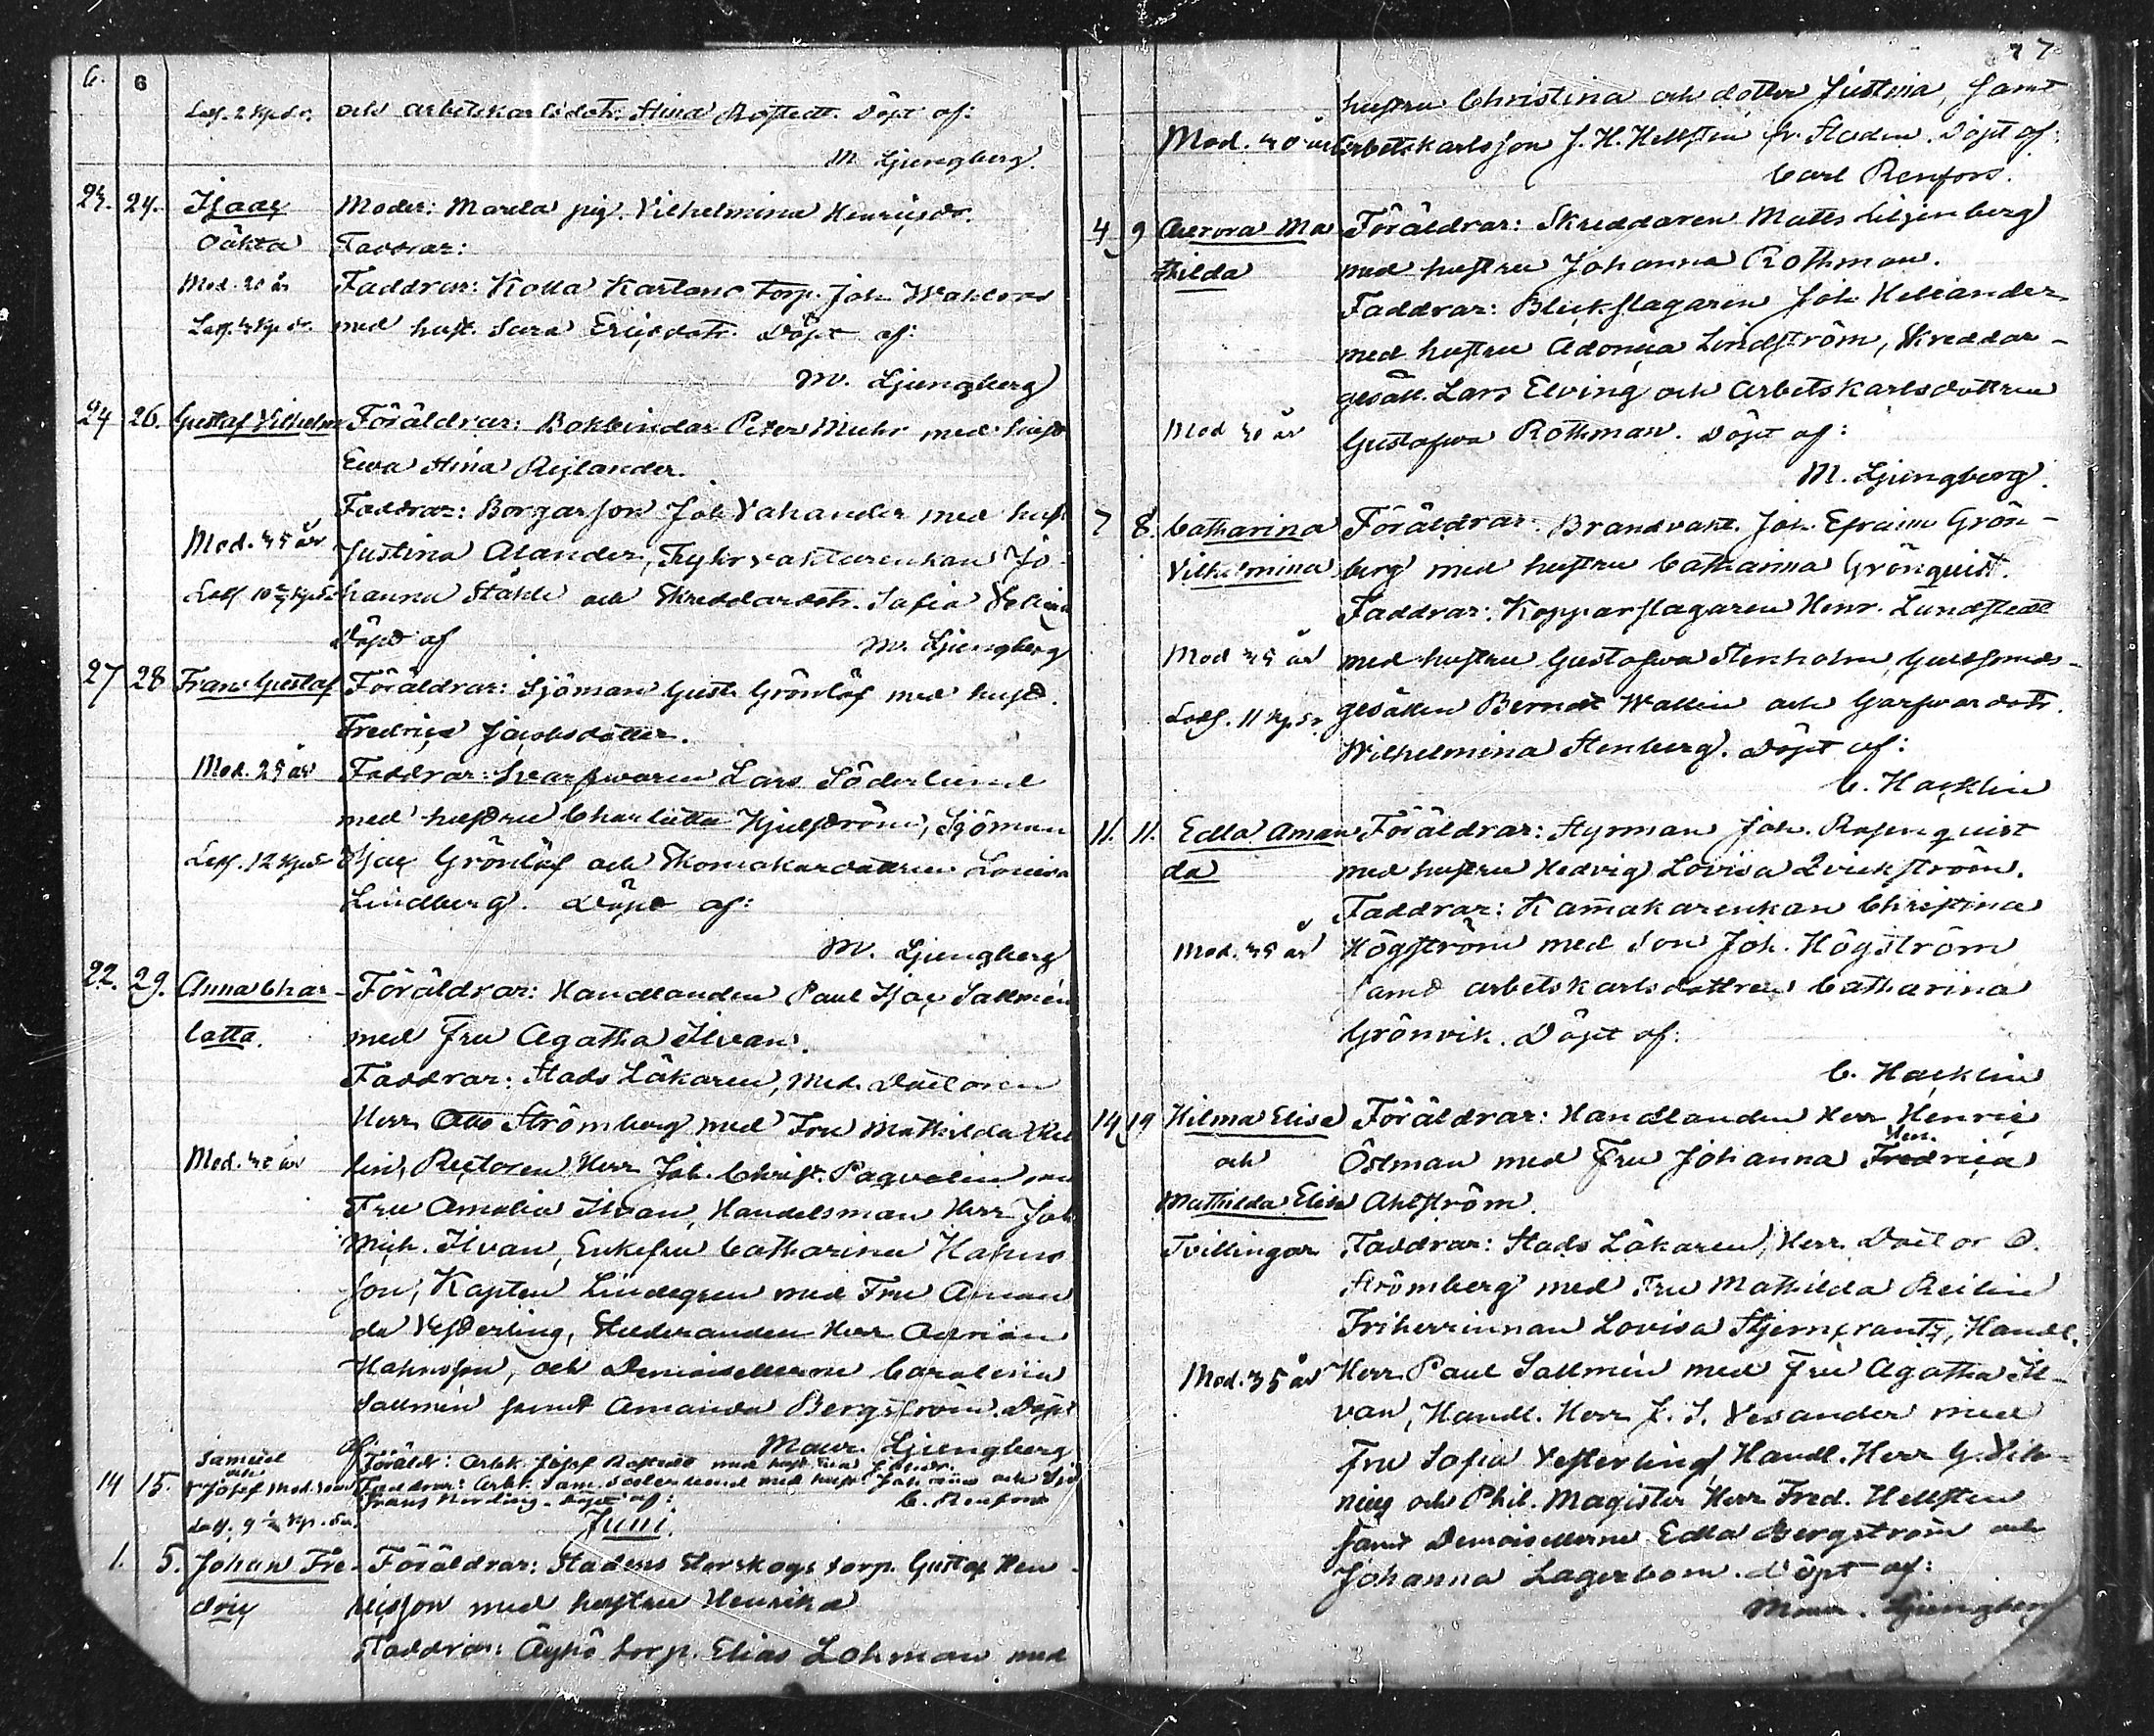 6. 6
och arbetskarlsdotr. Stina Rostedt. Döpt af:
M Ljungberg.
23. 24. Isaac Moder: Marila pig. Vilhelmina Henricsdr.
Oäkta Faddrar:
Mod. 20 år Faddrar: Kolla Kartano Torp. Joh
med hust. Sara Ericsdotr. Döpt af:
M. Ljungberg
24 26. Gustaf Vilhelm Föräldrar: Bokbindar Peter Muhr med hust
Ewa Stina Rejlander.
Faddrar: Borgarson Joh Vahander med hust
Mod. 45 år Justina Alander, Fyhrvaktarenkan Jo
hanna Ståhle och Skreddardotr. Sofia
Döpt af M. Ljungberg
27 28 Frans Gustaf Föräldrar: Sjöman Gust. Grönlöf med hust.
Fredrica Jacobsdotter.
Mod. 25 år Faddrar: Svarfwaren Lars Söderlund
med hustru Charlotta Hjulström, Sjöman
Isac Grönlöf och Skomakardottren Lovisa
Lindberg. Döpt af:
M. Ljungberg
22. 29. Anna Char- Föräldrar: Handlanden Paul Isac Sallmén
lotta. med Fru Agatha Ilvan.
Faddrar: Stads Läkaren, Med. Doctoren
Herr Otto Strömberg med Fru Mathilda Rei
Mod. 40 år lin, Rectoren Herr Joh. Christ. Paqvalin med
Fru Amalia Ilvan, Handelsman Herr Joh
Mich. Ilvan, Enkefru Catharina Hahns
son, Kapten Lindegren med Fru Aman
da Vesterling, Studeranden Herr Adrian
Hahnsson, och Demoisellerne Carolina
Sallmén samt Amanda Bergström. Döpt
af: Maur. Ljungberg
Samuel Föräldr: Arbk. Josef Rostedt med hust.
14 15. och Josef Faddrar: Arbk. Sam. Söderlund med hust.
Frans Nording. Döpt af: C. Renfors
Juni.
1. 5. Johan Fre- Föräldrar: Stadens Storskogs torp. Gustaf Hen-
dric ricsson med hustru Henrika
Faddrar: Äyhö torp. Elias Lohman med
7
hustru Christina och dotter Justina, samt
Mod. 40 år Arbetskarlsson J. H. Hellsten fr. Staden. Döpt af:
Carl Renfors.
4 9 Aurora Ma Föräldrar: Skreddaren Matts Liljenberg
thilda med hustru Johanna Rothman.
Faddrar: Bleckslagaren Joh Heliander
med hustru Adonica Lindström, Skreddar-
gesäll. Lars Elving och Arbetskarlsdottren
Mod 40 år Gustafwa Rothman. Döpt af:
M. Ljungberg.
7 8. Catharina Föräldrar: Brandvakt. Joh. Efraim Grön-
Vilhelmina berg med hustru Catharina Grönquist.
Faddrar: Kopparslagaren Henr. Lundstedt
Mod 35 år med hustru Gustafwa Stenholm, Guldsmeds-
gesällen Berndt Wallin och Garfwardotr.
Wilhelmina Stenberg. Döpt af:
C. Hacklin
11. 11. Edla Aman Föräldrar: Styrman Joh. Rosenquist
da med hustru Hedvig Lovisa Qvickström.
Faddrar: Kam̄akarenkan Christina
Mod. 35 år Högström med son Joh. Högström
samt arbetskarlsdottren Catharina
Grönvik. Döpt af:
C. Hacklin
14 19 Hilma Elise Föräldrar: Handlanden Herr Henric
och Östman med Fru Johanna Fredrica
Mathilda Elise Ahlström.
Tvillingar Faddrar: Stads Läkaren, Herr Doctor O.
Strömberg med Fru Mathilda Reilin
Friherrinnan Lovisa Stjerncrantz, Handl.
Mod. 35 år Herr Paul Sallmén med Fru Agatha Il-
van, Handl. Herr J. S. Vesander med
Fru Sofia Vesterling, Handl. Herr G.
och Phil. Magister Herr Fred. Hellsten
samt Demoisellerne Edla Bergström och
Johanna Lagerbom. Döpt af:
Maur. Ljungberg